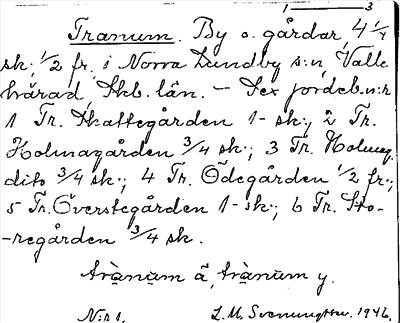 1 3
Tranum. By o. gårdar, 4 1/4
sk; 1/2 fr. i Norra Lundby s:n Valle
härad, Skb. län. – Sex jordeb.n:r
1 Tr. Skattegården 1- sk:, 2 Tr.
Holmagården 3/4 sk:; 3 Tr. Holmag.
dito 3/4 sk:; 4 Tr. Ödegården 1/2 fr:;
5 Tr. Överstegården 1-sk:; 6 Tr. Sto-
-regården 3/4 sk.
trànum ä̂, trànum y.
N:r 1. L. M. Svenungsson. 1946.